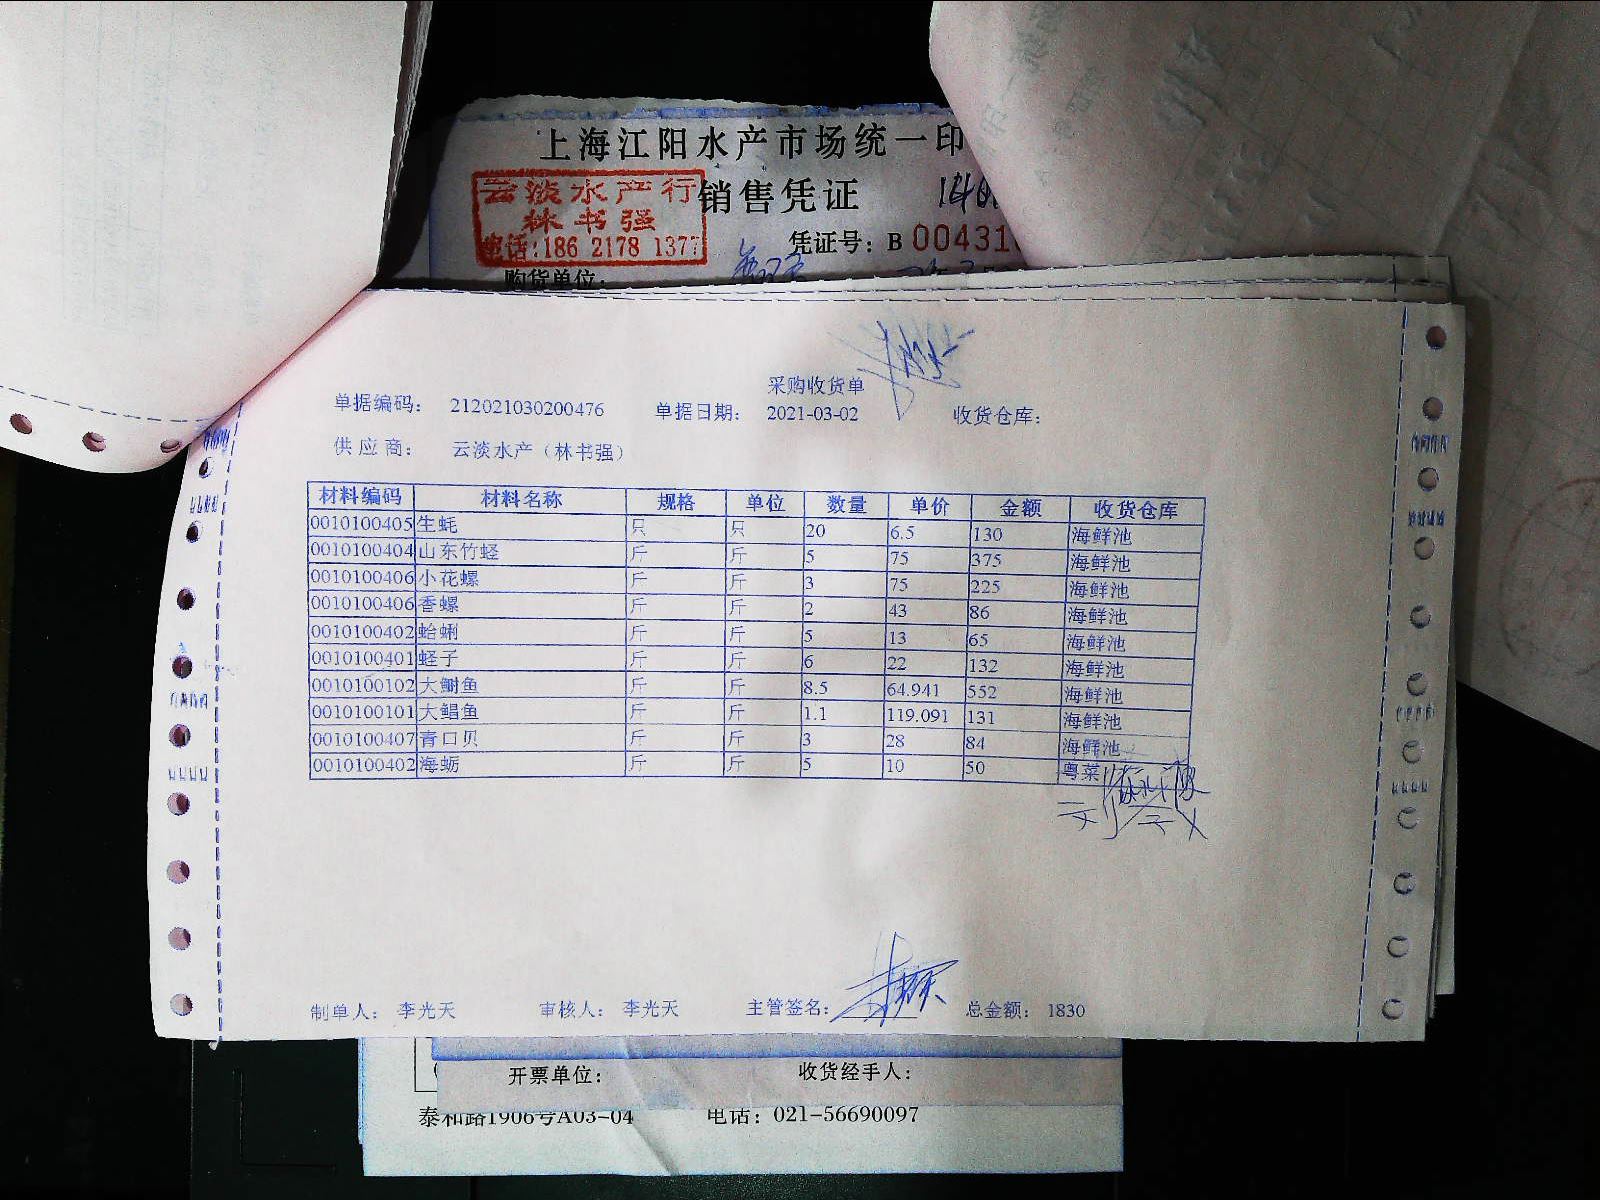 上海江阳水产市场统一印
云淡水产行
林书强
电话:186 2178 1377
销售凭证
凭证号: B 004316
购货单位:
采购收货单
单据编码: 212021030200476 单据日期: 2021-03-02 收货仓库:
供应商: 云淡水产（林书强）
材料编码 材料名称 规格 单位 数量 单价 金额 收货仓库
0010100405 生蚝 只 只 20 6.5 130 海鲜池
0010100404 山东竹蛏 斤 斤 5 75 375 海鲜池
0010100406 小花螺 斤 斤 3 75 225 海鲜池
0010100406 香螺 斤 斤 2 43 86 海鲜池
0010100402 蛤蜊 斤 斤 5 13 65 海鲜池
0010100401 蛏子 斤 斤 6 22 132 海鲜池
0010100102 大鲥鱼 斤 斤 8.5 64.941 552 海鲜池
0010100101 大鲳鱼 斤 斤 1.1 119.091 131 海鲜池
0010100407 青口贝 斤 斤 3 28 84 海鲜池
0010100402 海蛎 斤 斤 5 10 50 粤菜
制单人: 李光天 审核人: 李光天 主管签名: 总金额: 1830
开票单位: 收货经手人:
泰和路1906号A03-04 电话: 021-56690097